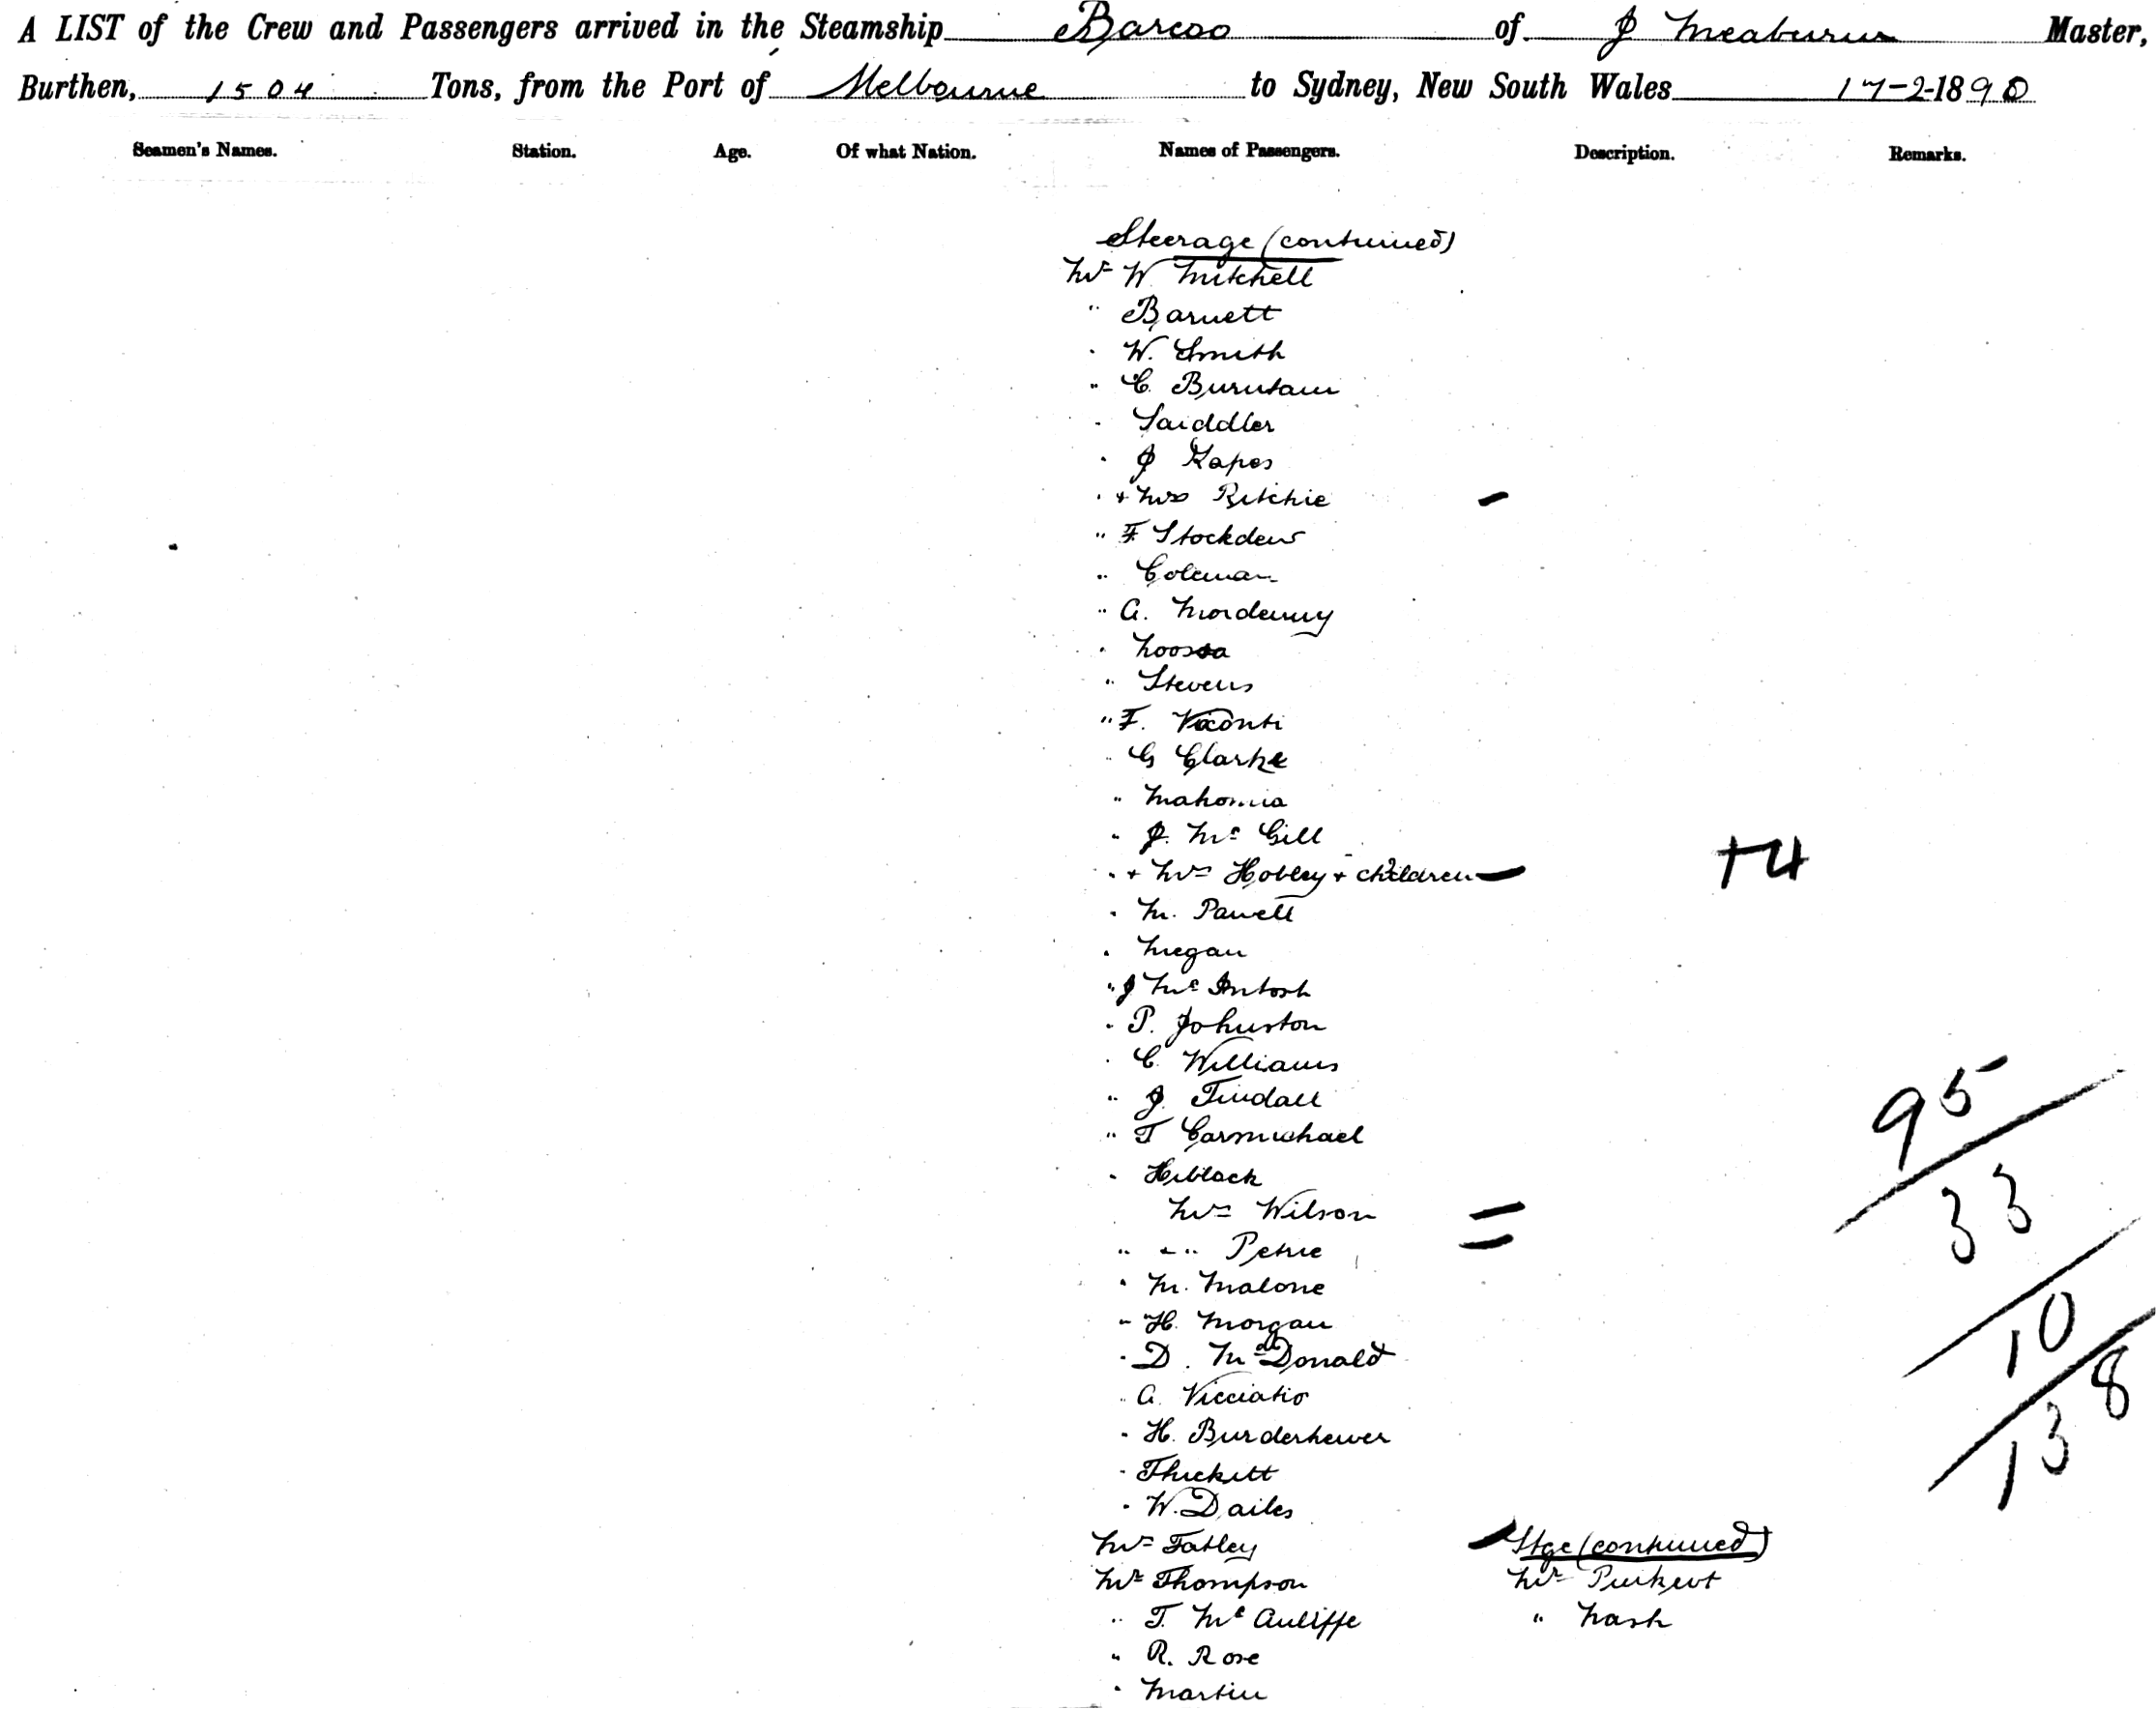 A LIST of the Crew and Passengers arrived in the Steamship Barcoo of J Meaburn Master,
Burthen, 1504 Tons, from the Port of Melbourne to Sydney, New South Wales 17-2-1890
Seamen's Names. Station. Age. Of what Nation. Names of Passengers. Description. Remarks.
Steerage (continued)
Mr W Mitchell
" Barnett
" W. Smith
" C. Burntam
" Saiddler
" J Kapes
" + Mrs Ritchie -
" F Stockden
" Coleman
" A. Mordenny
" Moossa
" Stevens
" F. Viconti
" G Clarke
" Mahomia
" J. Mc Gill
" + Mrs Hobley + 2 children - +4
" M. Pawell
" Megan
" J Mc Intosh
" P. Johnston
" C. Williams
" J. Tindall
" T Carmichael
" Heblack
Mrs Wilson -
" + " Petrie -
" M. Malone
" H. Morgan
" D. McDonald
" A. Vicciatio
" H. Burderhewer
" Thickett
" W. Dailes
Mrs Tatley -
Mr Thompson
" T. Mc Auliffe
" R. Rose
" Martin
Stge (continued)
Mr Purkert
" Nash
95
33
10
138